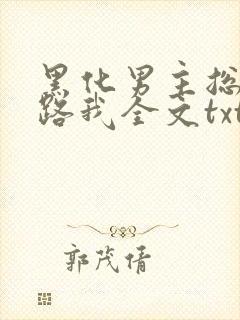 黑化男主总
路我全文txt
郭茂倩